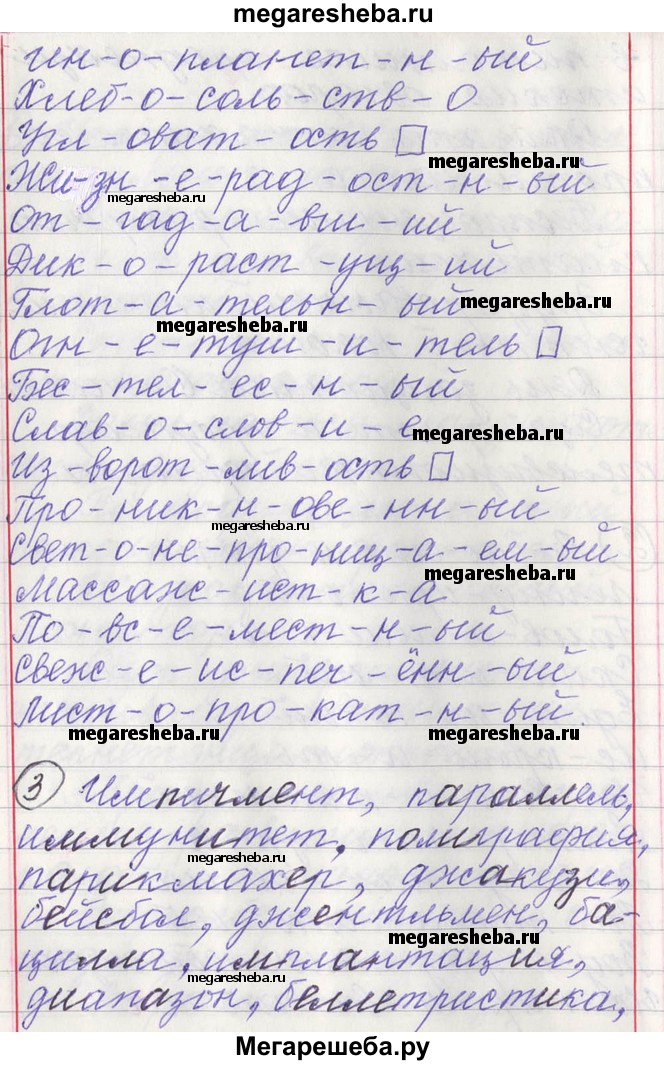 megaresheba.ru
ин-о-планет-н-ый
Хлеб-о-соль-ств-о
Угл-оват-ость
megaresheba.ru
Жи-зн-е-рад-ост-н-ый
megaresheba.ru
От-гад-а-вш-ий
Дик-о-раст-ущ-ий
Глот-а-тельн-ый
megaresheba.ru
megaresheba.ru
Огн-е-туш-и-тель
Бес-тел-ес-н-ый
Слав-о-слов-и-е
megaresheba.ru
Из-ворот-лив-ость
Про-ник-н-ове-нн-ый
megaresheba.ru
Свет-о-не-про-ниц-а-ем-ый
megaresheba.ru
Массаж-ист-к-а
По-вс-е-мест-н-ый
Свеж-е-ис-печ-ённ-ый
Лист-о-про-кат-н-ый
megaresheba.ru
megaresheba.ru
3 Импичмент, параллель,
иммунитет, полиграфия,
megaresheba.ru
парикмахер, джакузи,
бейсбол, джентльмен, ба-
megaresheba.ru
цилла, имплантация,
megaresheba.ru
диапазон, беллетристика,
Мегарешеба.ру